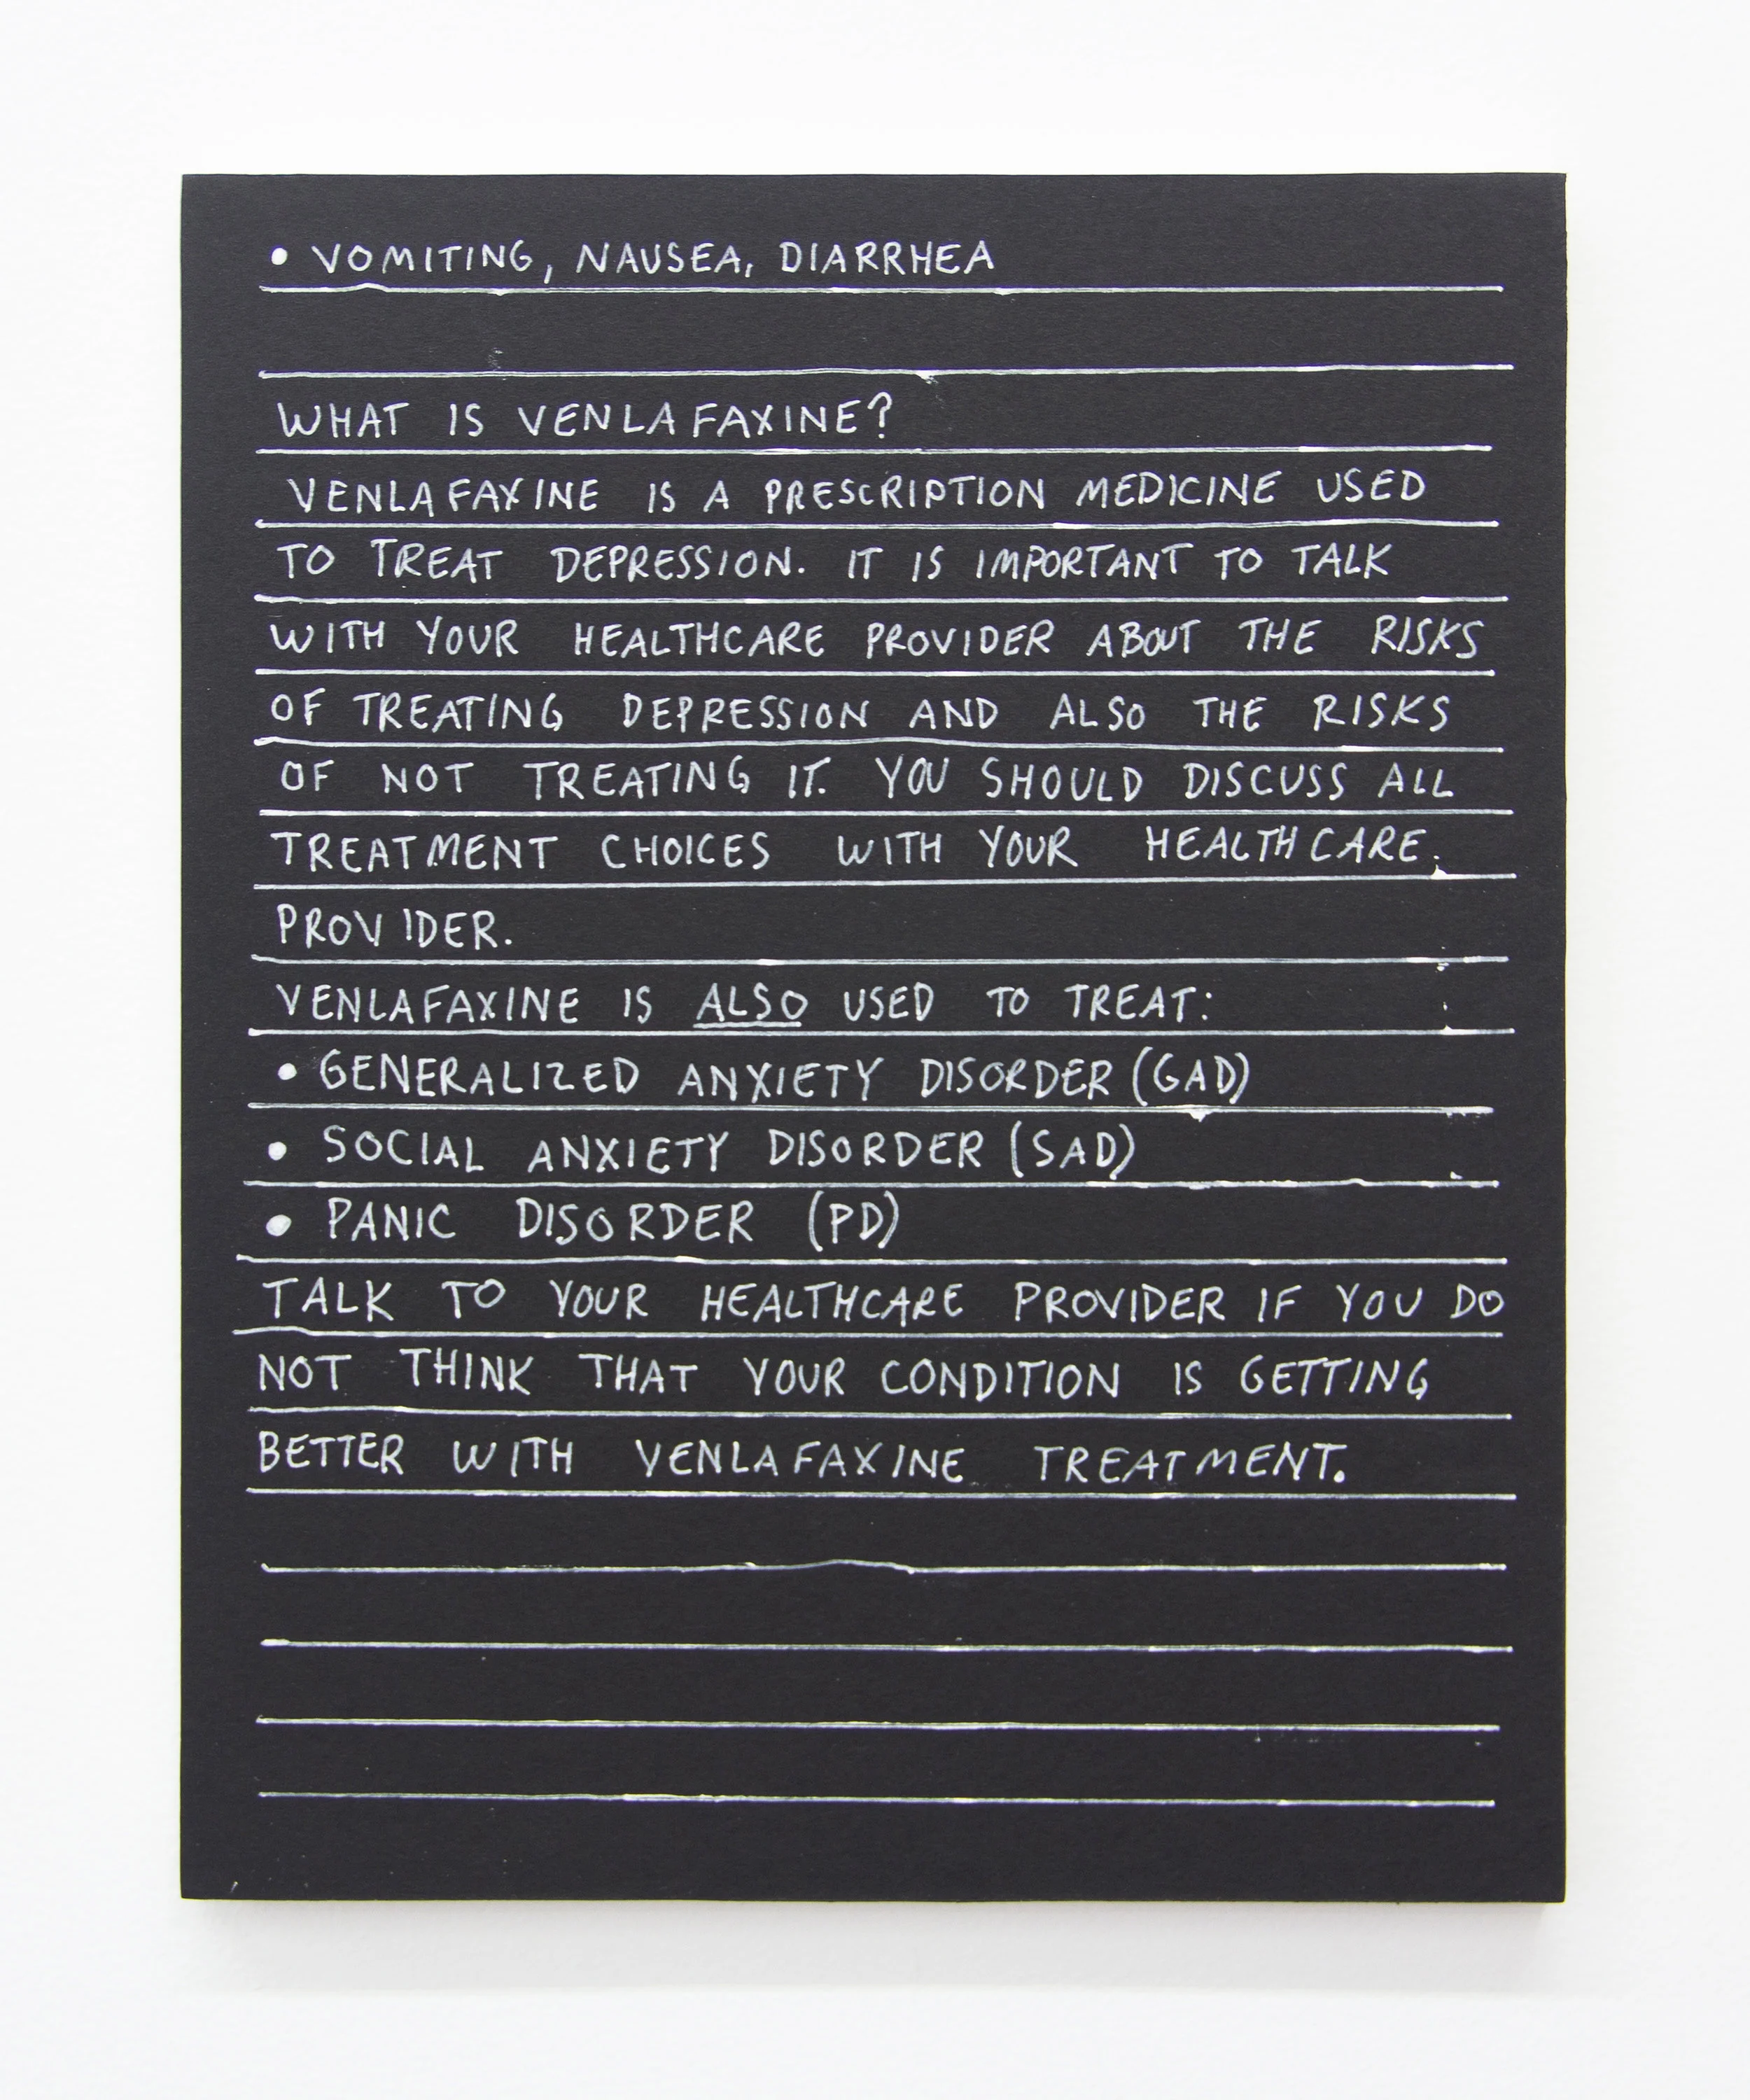 • VOMITING, NAUSEA, DIARRHEA
WHAT IS VENLAFAXINE?
VENLAFAXINE IS A PRESCRIPTION MEDICINE USED
TO TREAT DEPRESSION. IT IS IMPORTANT TO TALK
WITH YOUR HEALTHCARE PROVIDER ABOUT THE RISKS
OF TREATING DEPRESSION AND ALSO THE RISKS
OF NOT TREATING IT. YOU SHOULD DISCUSS ALL
TREATMENT CHOICES WITH YOUR HEALTHCARE.
PROVIDER.
VENLAFAXINE IS ALSO USED TO TREAT:
• GENERALIZED ANXIETY DISORDER (GAD)
• SOCIAL ANXIETY DISORDER (SAD)
• PANIC DISORDER (PD)
TALK TO YOUR HEALTHCARE PROVIDER IF YOU DO
NOT THINK THAT YOUR CONDITION IS GETTING
BETTER WITH VENLAFAXINE TREATMENT.